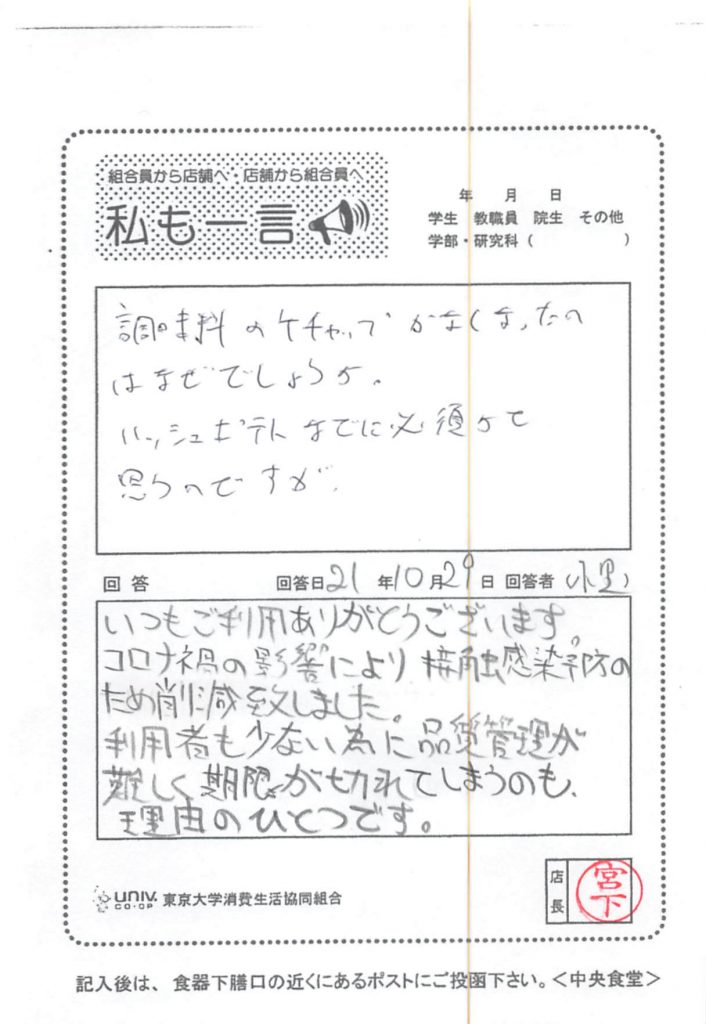 組合員から店舗へ・店舗から組合員へ
私も一言
年 月 日
学生 教職員 院生 その他
学部・研究科( )
調味料のケチャップがなくなったの
はなぜでしょうか。
ハッシュポテトなどに必須かと
思うのですが。
回答 回答日21年10月29日 回答者(小里)
いつもご利用ありがとうございます
コロナ禍の影響により接触感染予防の
ため削減致しました。
利用者も少ない為に品質管理が
難しく期限が切れてしまうのも、
理由のひとつです。
UNIV. CO-OP 東京大学消費生活協同組合
店長 宮下
記入後は、食器下膳口の近くにあるポストにご投函下さい。<中央食堂>